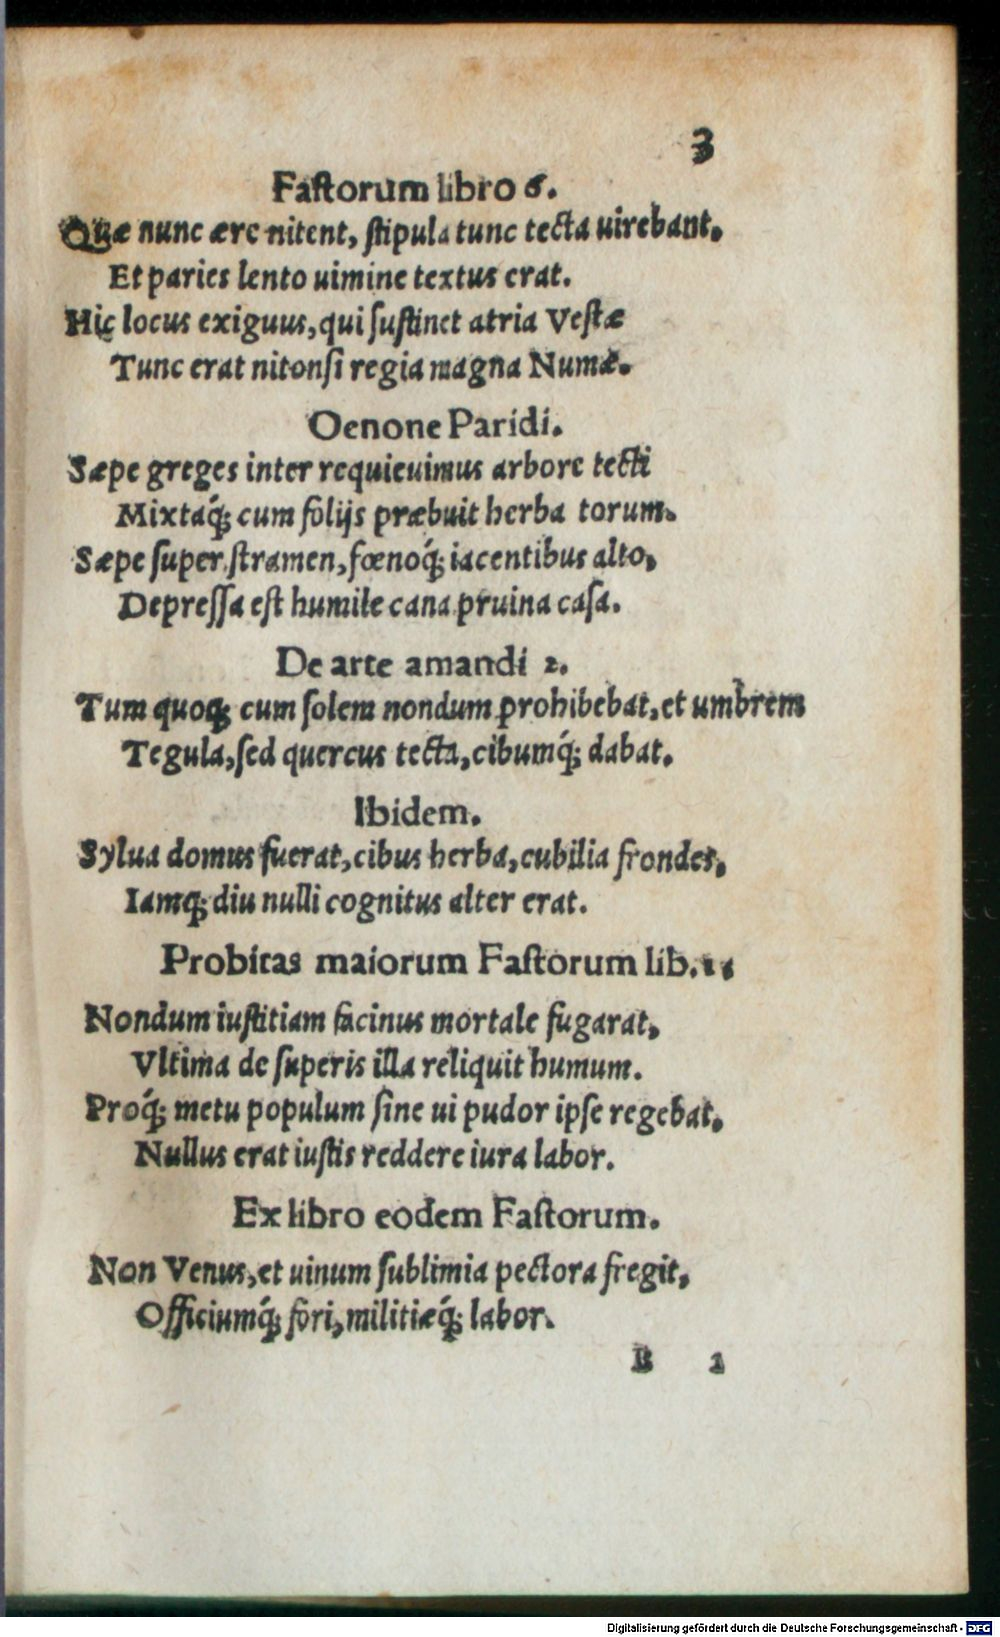 3
Faſtorum libro 6.
Quæ nunc ære nitent, ſtipula tunc tecta uirebant.
Et paries lento uimine textus erat.
Hic locus exiguus, qui ſuſtinet atria Veſtæ
Tunc erat nitonſi regia magna Numæ.
Oenone Paridi.
Sæpe greges inter requieuimus arbore tecti
Mixtaq́; cum folijs præbuit herba torum.
Sæpe super ſtramen, fœnoq́; iacentibus alto,
Depreſſa eſt humile cana pruina caſa.
De arte amandi 2.
Tum quoq; cum ſolem nondum prohibebat, et umbrem
Tegula, ſed quercus tecta, cibumq́; dabat.
Ibidem.
Sylua domus fuerat, cibus herba, cubilia frondes,
Iamq; diu nulli cognitus alter erat.
Probitas maiorum Faſtorum lib. 1.
Nondum iuſtitiam facinus mortale fugarat,
Vltima de ſuperis illa reliquit humum.
Proq́; metu populum ſine ui pudor ipſe regebat,
Nullus erat iuſtis reddere iura labor.
Ex libro eodem Faſtorum.
Non Venus, et uinum ſublimia pectora fregit,
Officiumq́; fori, militiæq́; labor.
B 1
Digitalisierung gefördert durch die Deutsche Forschungsgemeinschaft - DFG